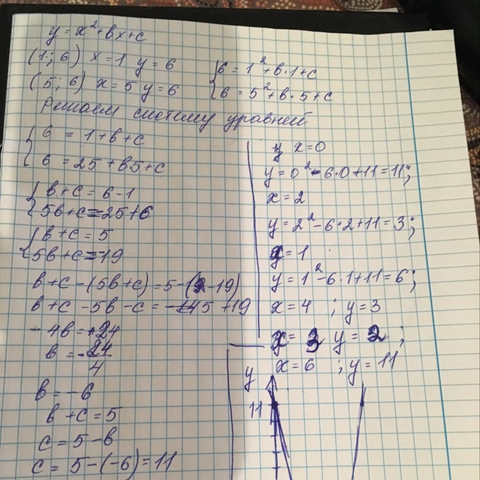 y = x² + bx + c
(1; 6) x = 1 y = 6
(5; 6) x = 5 y = 6
{ 6 = 1² + b·1 + c
6 = 5² + b·5 + c
Решаем систему уравней
{ 6 = 1 + b + c
6 = 25 + b5 + c
{ b + c = 6 - 1
5b + c = 25 + 6
{ b + c = 5
5b + c = -19
b + c - (5b + c) = 5 - (-19)
b + c - 5b - c = 5 + 19
-4b = +24
b = -24/4
b = -6
b + c = 5
c = 5 - b
c = 5 - (-6) = 11
y x = 0
y = 0² - 6·0 + 11 = 11;
x = 2
y = 2² - 6·2 + 11 = 3;
x = 1
y = 1² - 6·1 + 11 = 6;
x = 4 ; y = 3
x = 3 y = 2 ;
x = 6 ; y = 11
y
11